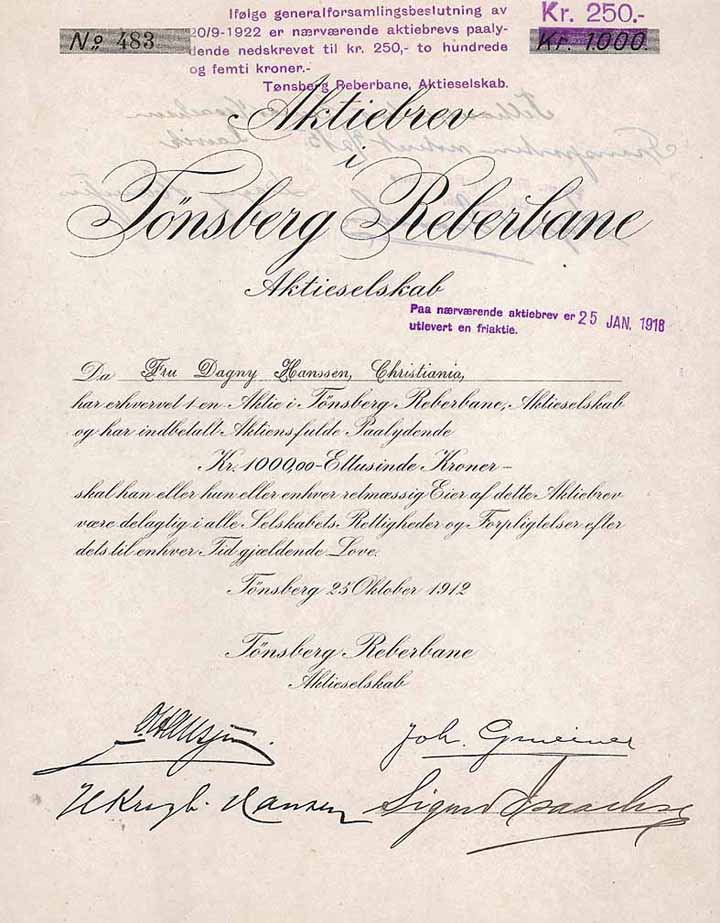 Ifølge generalforsamlingsbeslutning av
20/9-1922 er nærværende aktiebrevs paaly-
dende nedskrevet til kr. 250,- to hundrede
og femti kroner.-
Tønsberg Reberbane, Aktieselskab.
Kr. 250.-
No 483
Kr. 1000.
Aktiebrev
i
Tönsberg Reberbane
Aktieselskab
Paa nærværende aktiebrev er 25 JAN. 1918
utlevert en friaktie.
Da Fru Dagny Hanssen, Christiania,
har erhvervet 1 en Aktie i Tönsberg Reberbane, Aktieselskab
og har indbetalt Aktiens fulde Paalydende
Kr. 1000,00 - Ettusinde Kroner -
skal han eller hun eller enhver retmæssig Eier af dette Aktiebrev
være delagtig i alle Selskabets Rettigheder og Forpligtelser efter
dets til enhver Tid gjældende Love.
Tönsberg 25 Oktober 1912
Tönsberg Reberbane
Aktieselskab
Joh. Grueiner
Hansen
Sigurd